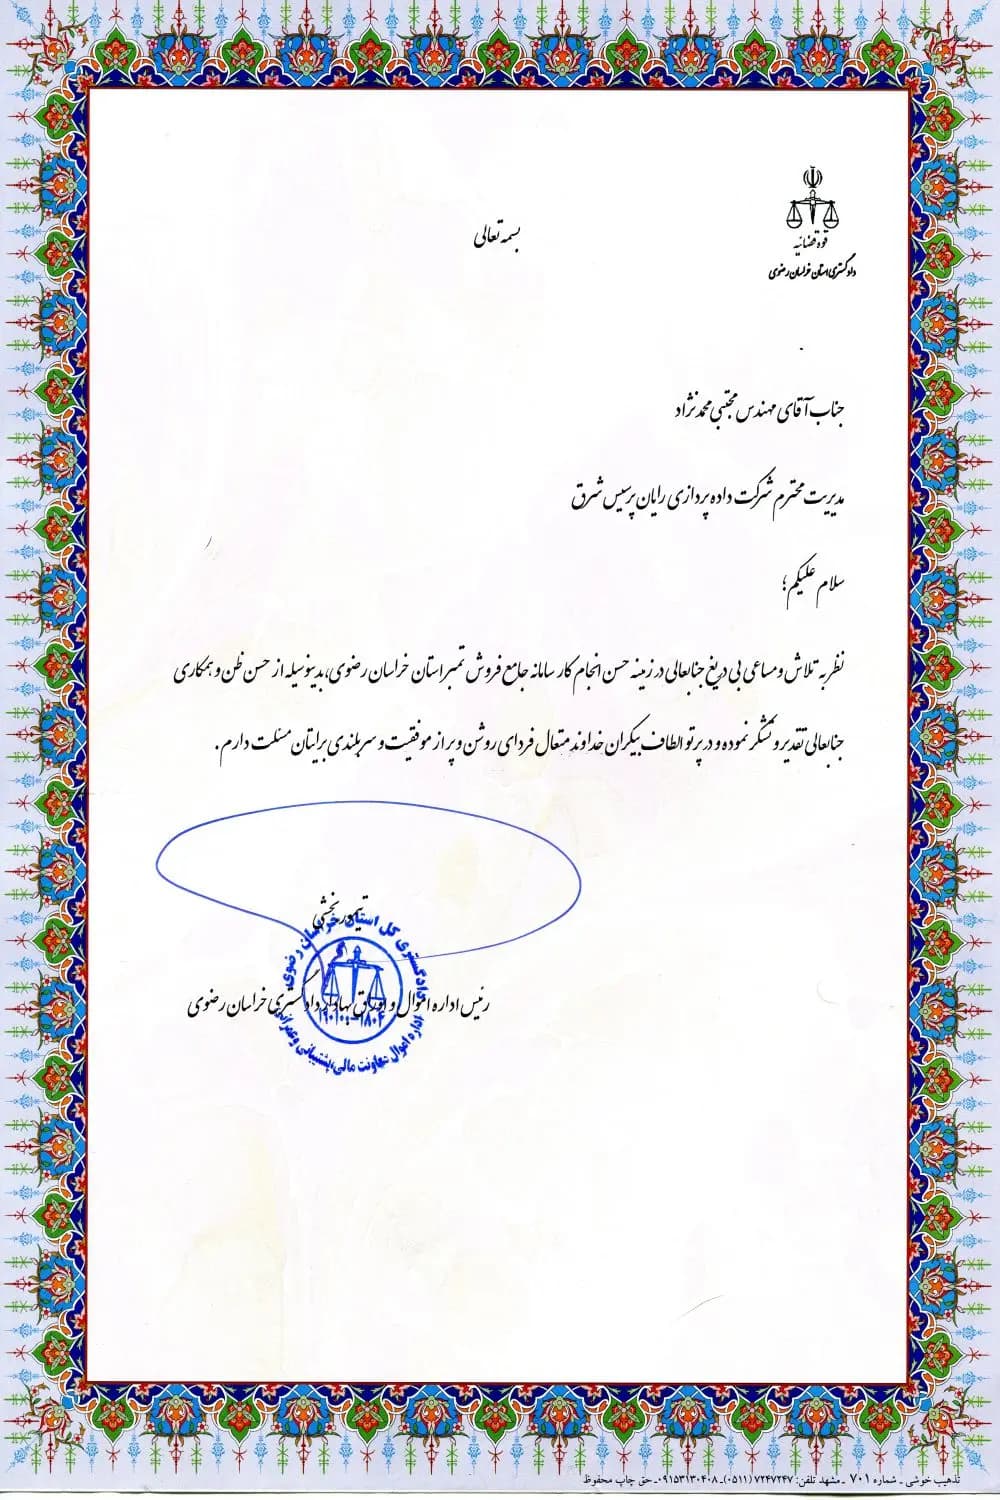 قوه قضائیه
دادگستری استان خراسان رضوی
بسمه تعالی
جناب آقای مهندس مجتبی محمدنژاد
مدیریت محترم شرکت داده پردازی رایان پرسیس شرق
سلام علیکم؛
نظر به تلاش و مساعی بی دریغ جنابعالی در زمینه حسن انجام کار سامانه جامع فروش تمبر استان خراسان رضوی، بدینوسیله از حسن ظن و همکاری
جنابعالی تقدیر و تشکر نموده و در پرتو الطاف بیکران خداوند متعال فردای روشن و پر از موفقیت و سربلندی برایتان مسئلت دارم.
تیمور بخشی
رئیس اداره اموال و اوراق بهادار دادگستری خراسان رضوی
دادگستری کل استان خراسان رضوی
اداره اموال معاونت مالی، پشتیبانی و عمرانی
تذهیب خوشی ـ شماره ۷۰۱ ـ مشهد تلفن: ۷۲۴۷۲۴۷ (۰۵۱۱)ـ ۰۹۱۵۳۱۳۰۴۰۸ـ حق چاپ محفوظ